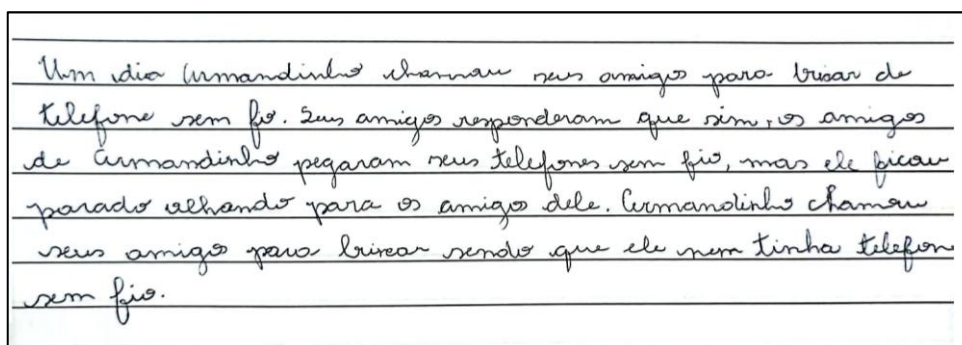 Um dia Armandinho chamou seus amigos para bricar de
telefone sem fio. Seus amigos responderam que sim, os amigos
de Armandinho pegaram seus telefones sem fio, mas ele ficou
parado olhando para os amigo dele. Armandinho chamou
seus amigo para bricar sendo que ele nem tinha telefon
sem fio.